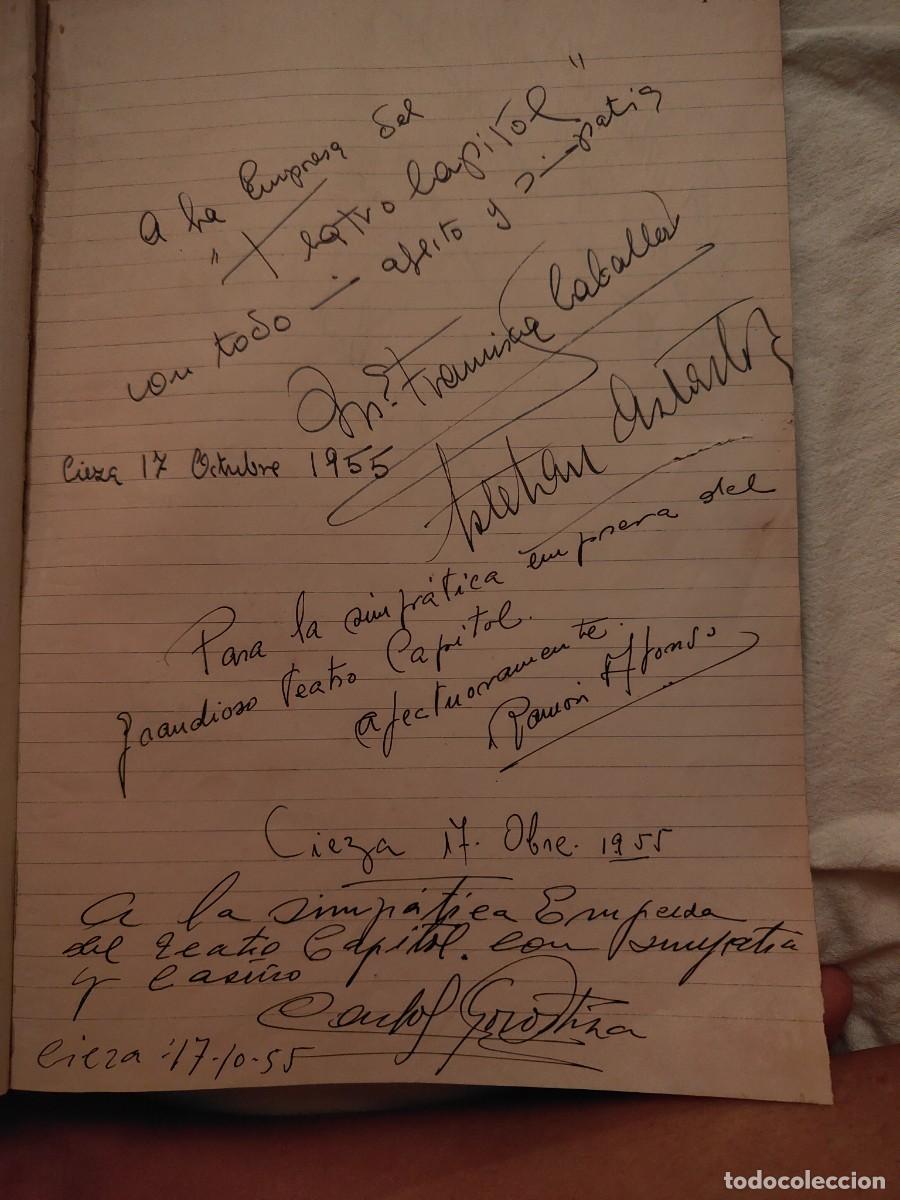 A La Empresa del
"Teatro Capitol"
con todo afecto y simpatia
Mª Francisca Caballer
Cieza 17 Octubre 1955
Esteban Astarloa
Para la simpática empresa del
grandioso Teatro Capitol.
Afectuosamente.
Ramón Alfonso
Cieza 17. Obre. 1955
A la simpática Empresa
del Teatro Capitol. con simpatia
y cariño
Carlos Gorostiza
Cieza 17-10-55
todocoleccion